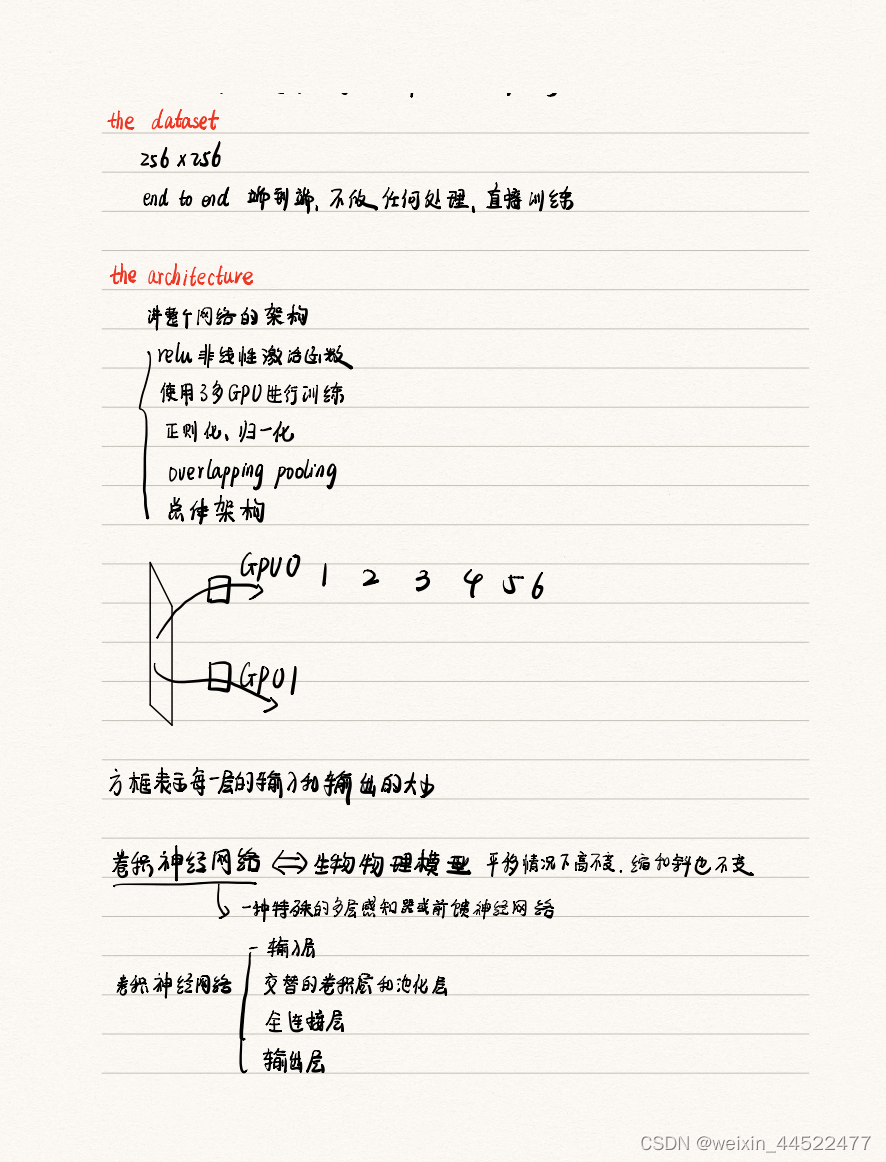 the dataset
256 x 256
end to end 端到端, 不做任何处理, 直接训练
the architecture
讲整个网络的架构
relu 非线性激活函数
使用了多GPU进行训练
正则化、归一化
overlapping pooling
总体架构
GPU0 1 2 3 4 5 6
GPU1
方框表示每一层的输入和输出的大小
卷积神经网络 <=> 生物物理模型 平移情况下高不变. 缩和斜也不变
一种特殊的多层感知器或前馈神经网络
输入层
卷积神经网络 交替的卷积层和池化层
全连接层
输出层
CSDN @weixin_44522477